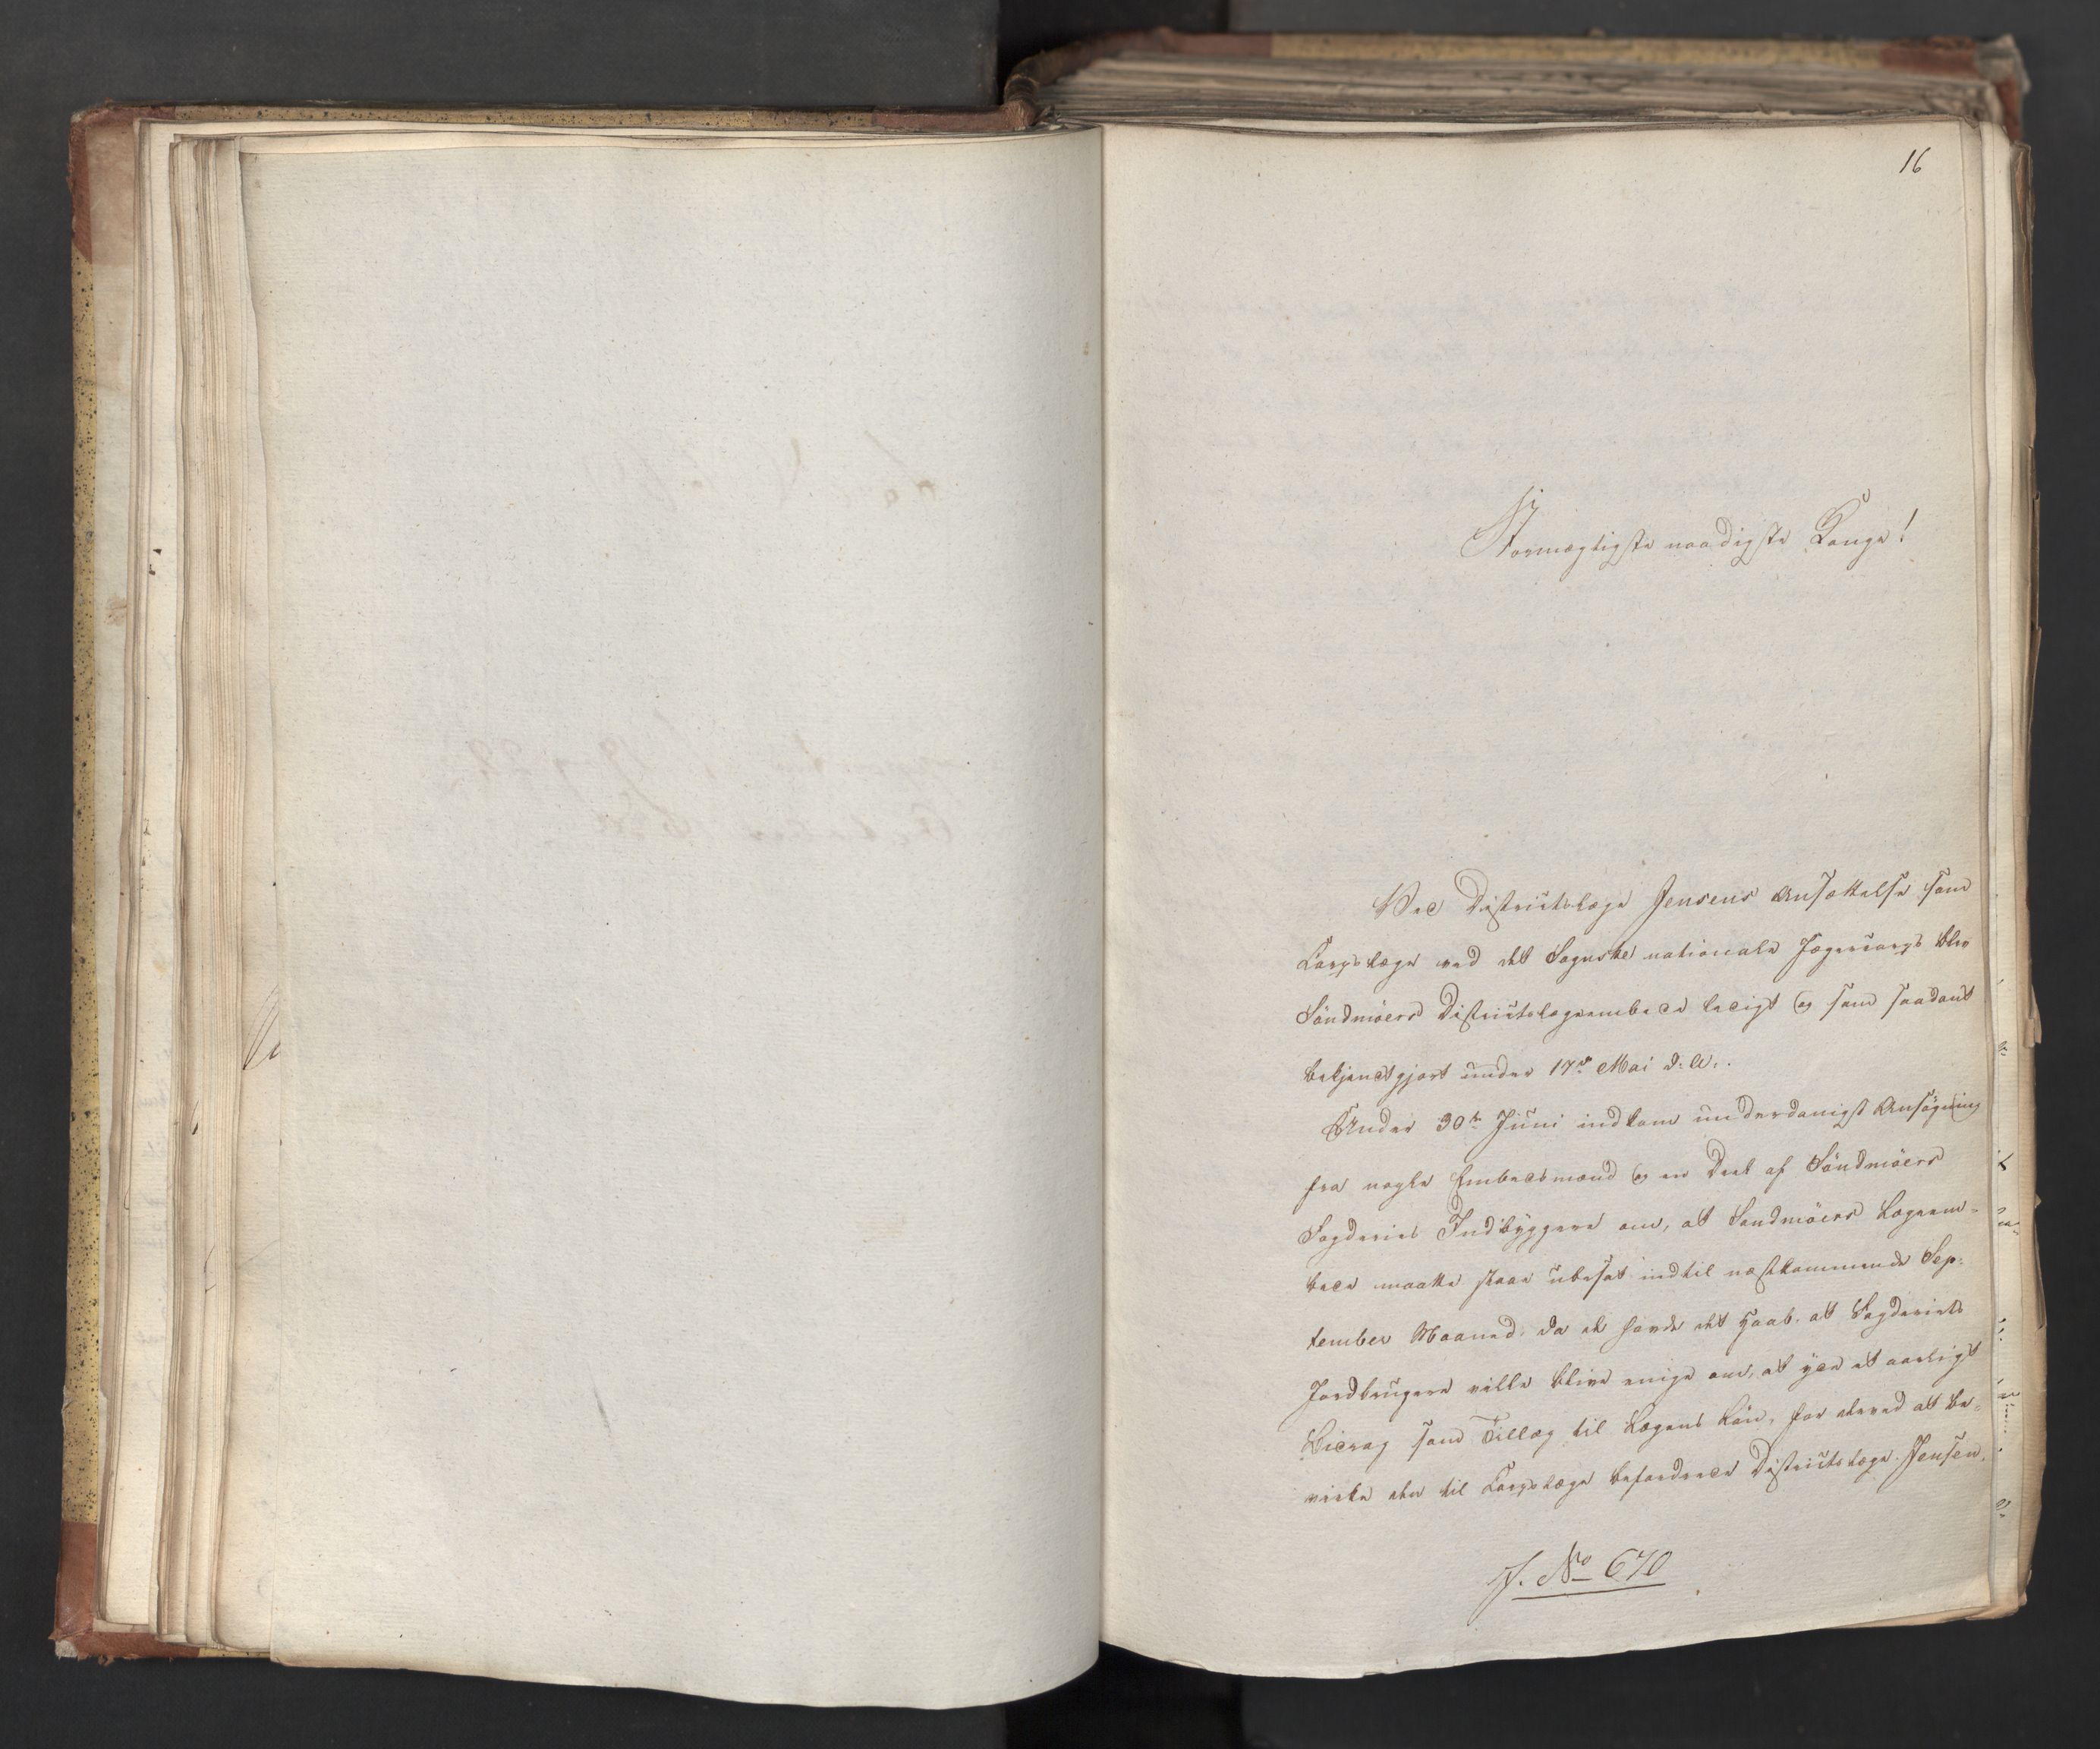 16
Stormægtigste naadigste Konge!
Ved Districtslæge Jensens Ansættelse som
Corpslæge ved det nationale Jægercorps blev
Söndmöers Districtslægeembede ledigt og som saadant
bekjendtgjort under 17de Mai d: A:.
Under 30te Juni indkom underdanigst Ansøgning
fra nogle Embedsmænd og en Deel af Söndmöers
Fogderies Indbyggere om, at Söndmöers Lægeem-
bede maatte staae ubesat indtil næstkommende Sep-
tember Maaned, da de havde det Haab, at Fogderiets
Jordbrugere ville blive enige om, at yde et aarligt
Bidrag som Tillæg til Lægens Lön, for derved at be-
virke den til Corpslæge befordrede Districtslæge Jensen,
J. No 670